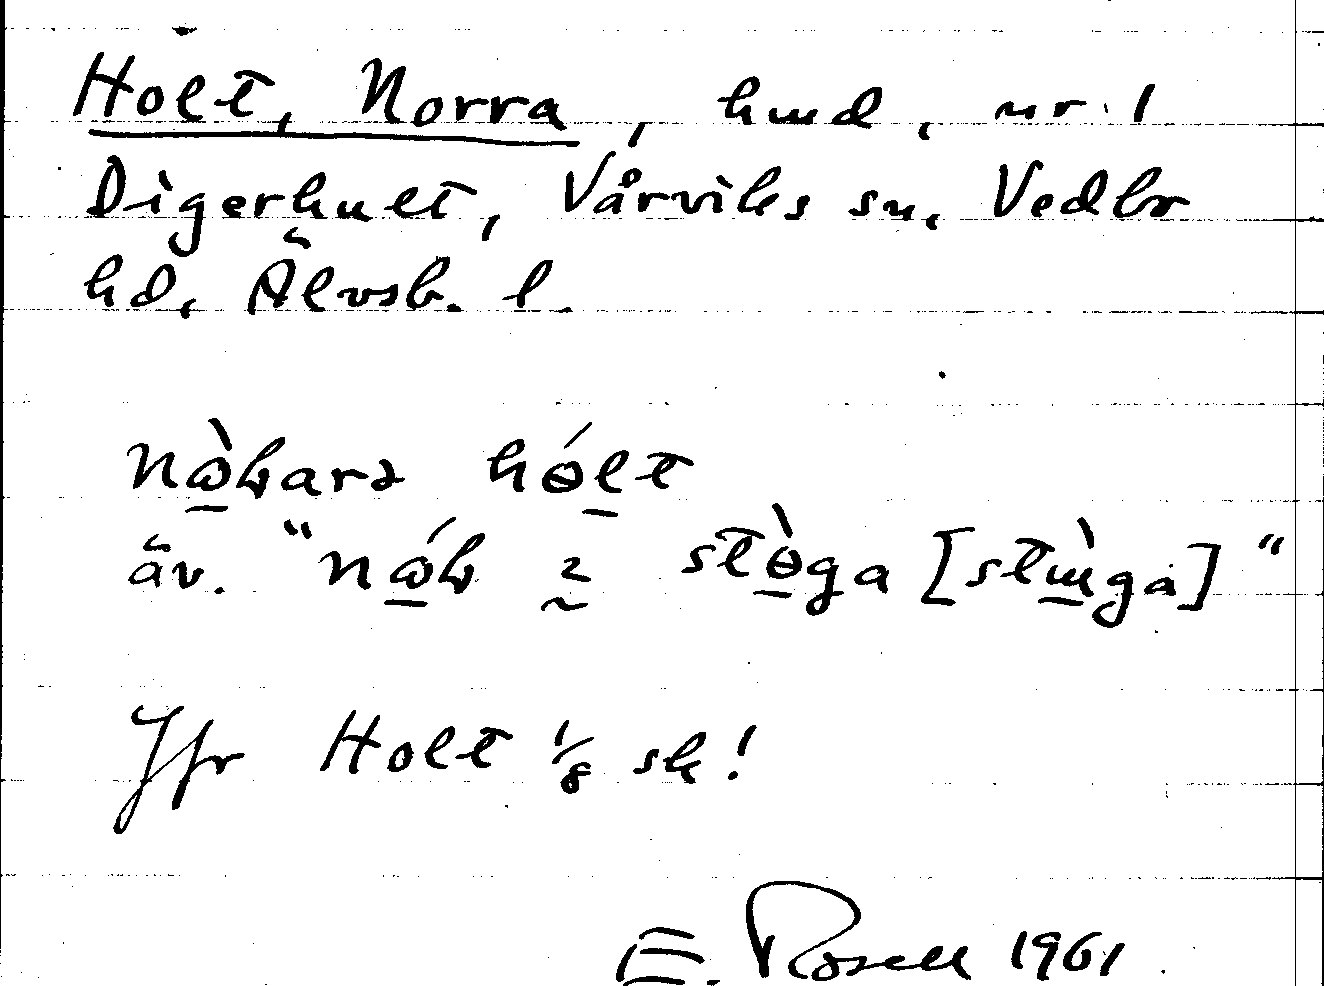 Holt, Norra, hmd, nr 1
Digerhult, Vårviks sn, Vedbo
hd, Älvsb. l.
hólt
äv.
Jfr Holt 1/8 sk!
E. Rosell 1961